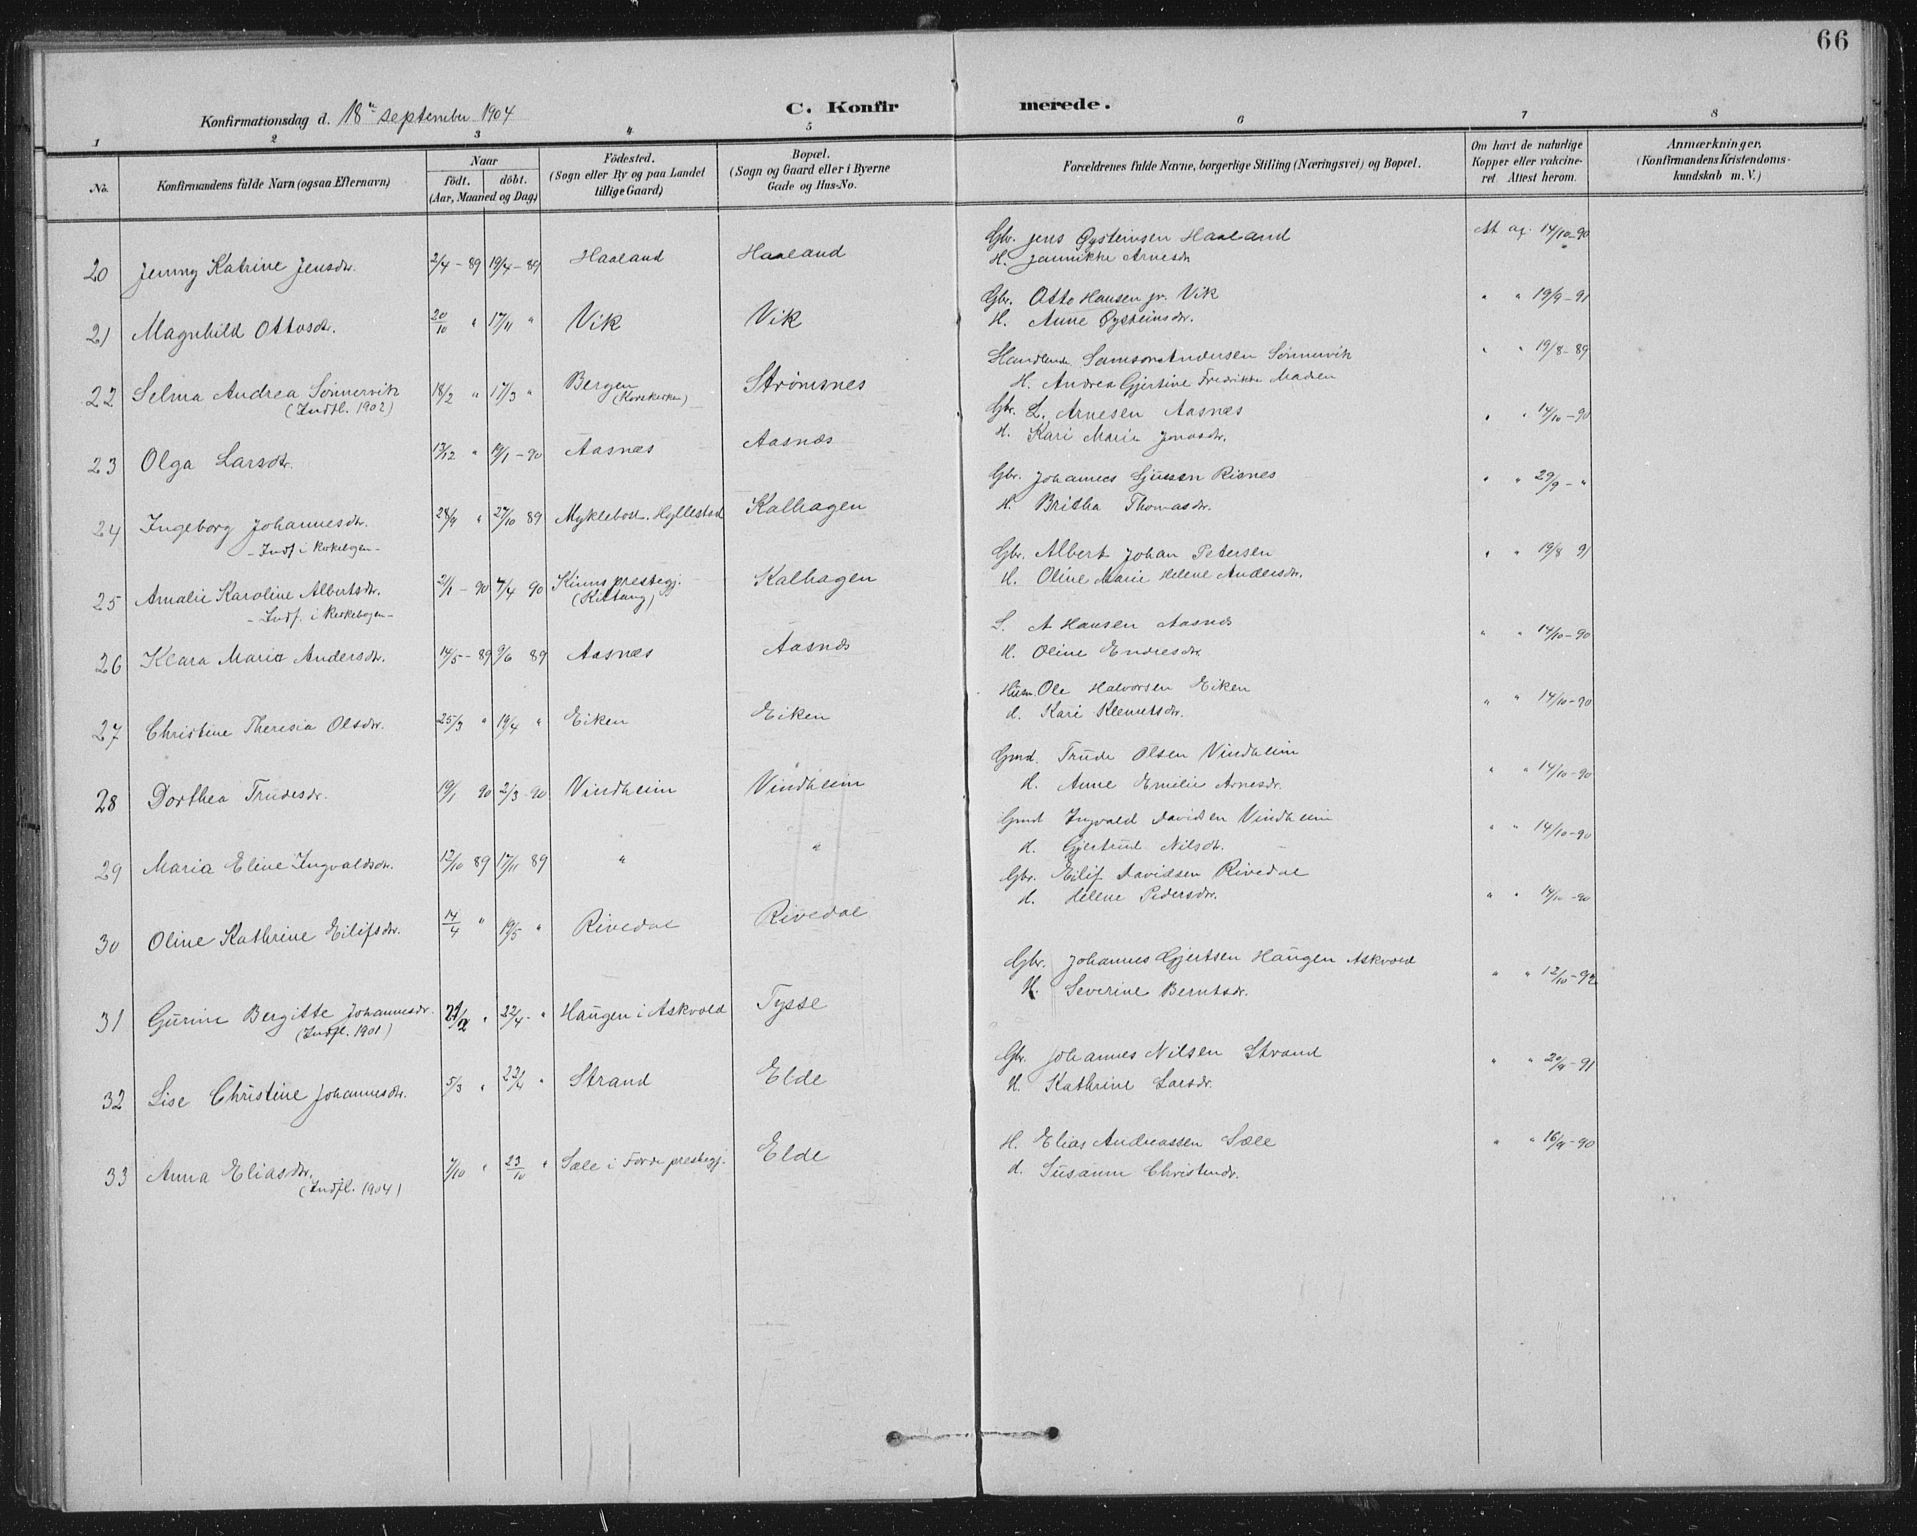 66
Konfirmationsdag d. 18de september 1904 C. Konfirmerede.
1 2 3 4 5 6 7 8
No. Konfirmandens fulde Navn (ogsaa Efternavn)
Naar
födt. döbt.
(Aar, Maaned og Dag)
Födested.
(Sogn eller By og paa Landet
tillige Gaard)
Bopæl.
(Sogn og Gaard eller i Byerne
Gade og Hus-No.
Forældrenes fulde Navne, borgerlige Stilling (Næringsvei) og Bopæl.
Om havt de naturlige
Kopper eller vakcine-
ret. Attest herom.
Anmærkninger,
(Konfirmandens Kristendoms-
kundskab m. V.)
20 Jenny Katrine Jensdtr. 2/4 - 89 19/4 - 89 Haaland Haaland
Gbr. Jens Øysteinsen Haaland At. af. 14/10-90
H. Jannikke Arnesdtr
21 Magnhild Ottosdtr. 20/10 " 17/11 " Vik Vik
Gbr. Otto Hansen jr. Vik " " 19/9-91
H. Anne Øysteinsdtr.
22 Selma Andrea Sönnervik 18/2 " 17/3 " Bergen Strømsnes
(Indfl. 1902) (Korskirken)
Handlende Samson Andersen Sönnervik " " 19/8-89
H. Andrea Gjertine Fredrikke Madsen
23 Olga Larsdtr. 13/12 " 19/1 - 90 Aasnæs Aasnæs
Gbr. L. Arnesen Aasnæs " " 14/10-90
H. Kari Marie Jonasdtr.
24 Ingeborg Johannesdtr. 28/9 " 27/10 89 Myklebost. Hyllestad Kalhagen
- Indf i kirkebogen -
Gbr. Johannes Sjursen Risnes " " 29/9 - "
H. Britha Thomasdtr.
25 Amalie Karoline Albertsdtr. 2/1 - 90 7/4 90 Kinns prestegj. Kalhagen
- Indf. i kirkebogen - (Kittang)
Gbr. Albert Johan Petersen " " 19/8 91
H. Oline Marie Helene Andersdtr.
26 Klara Maria Andersdtr. 14/5 - 89 9/6 89 Aasnæs Aasnæs
S. A Hansen Aasnæs " " 14/10-90
H. Oline Endresdtr.
27 Christine Theresia Olsdtr. 25/3 " 19/4 " Eiken Eiken
Husm. Ole Halvorsen Eiken " " 14/10-90
H. Kari Klemetsdtr.
28 Dorthea Trudesdr. 19/1 90 2/3 - 90 Vindheim Vindheim
Gmd. Trude Olsen Vindheim " " 14/10-90
H. Anne Emilie Arnesdr.
29 Maria Eline Ingvaldsdtr. 12/10 89 17/11 89 " "
Gmd Ingvald Davidsen Vindheim " " 14/10-90
H. Gjertrud Nilsdtr.
30 Oline Kathrine Eilifsdtr. 14/4 " 19/5 " Rivedal Rivedal
Gbr. Eilif Davidsen Rivedal " " 14/10-90
H. Helene Pedersdtr.
31 Gurine Bergitte Johannesdtr. 21/2 " 22/4 " Haugen i Askvold Tysse
(Indfl. 1901)
Gbr. Johannes Gjertsen Haugen Askvold " " 12/10-92
H. Severine Berntsdr.
32 Lise Christine Johannesdtr. 5/3 " 22/4 " Strand Elde
Gbr. Johannes Nilsen Strand " " 20/9-91
H. Kathrine Larsdr.
33 Anna Eliasdtr. 7/10 " 23/10 " Sæle i Förde prestegj. Elde
(Indfl. 1904)
H. Elias Andreassen Sæle " " 16/9-90
H. Susanne Christensdr.